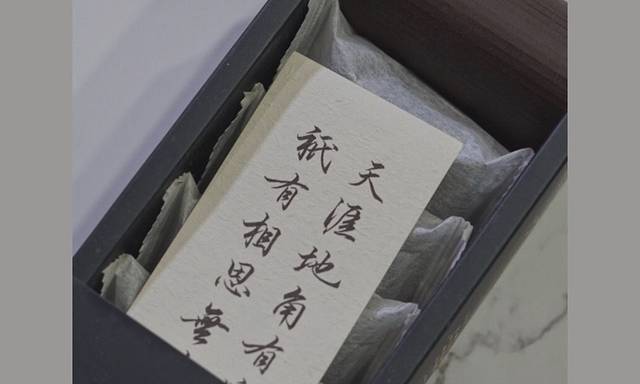 天涯地角有
祇有相思無